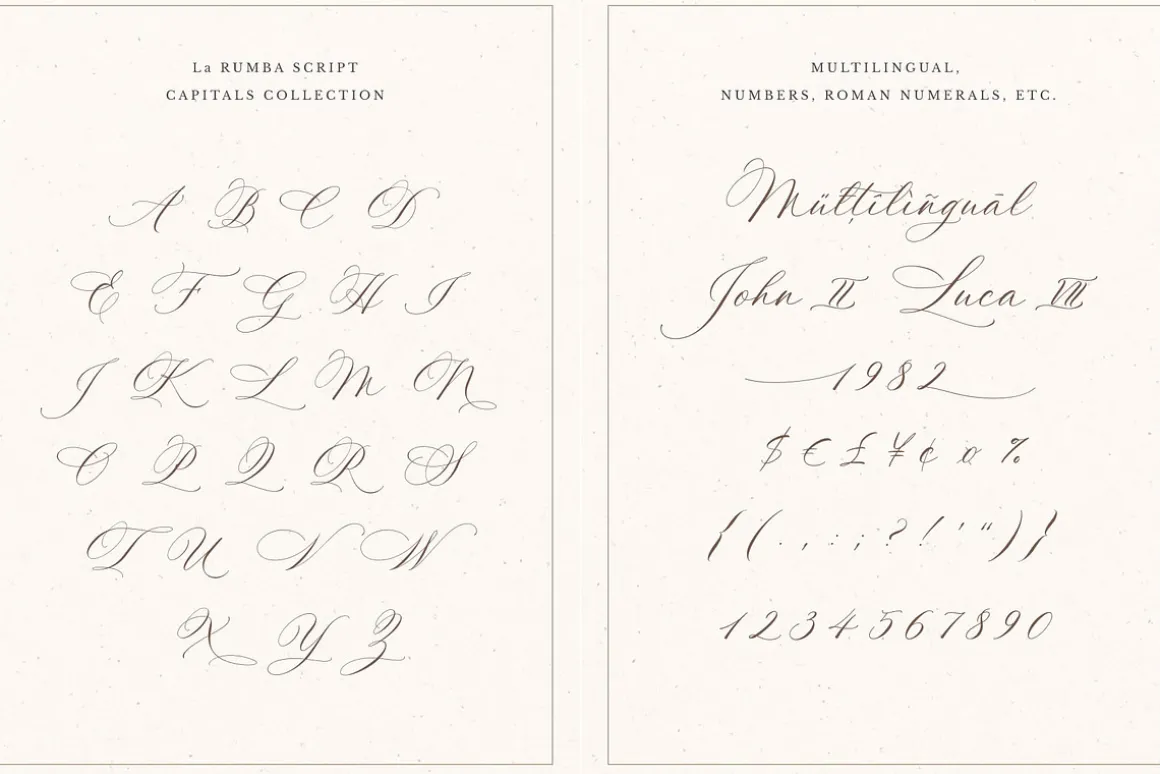 La RUMBA SCRIPT
CAPITALS COLLECTION
A B C D
E F G H I
J K L M N
O P Q R S
T U V W
X Y Z
MULTILINGUAL,
NUMBERS, ROMAN NUMERALS, ETC.
Müłțîlìñguāl
John II Luca VII
1982
$ € £ ¥ ¢ ¤ %
{ ( . , : ; ? ! ' " ) }
1234567890